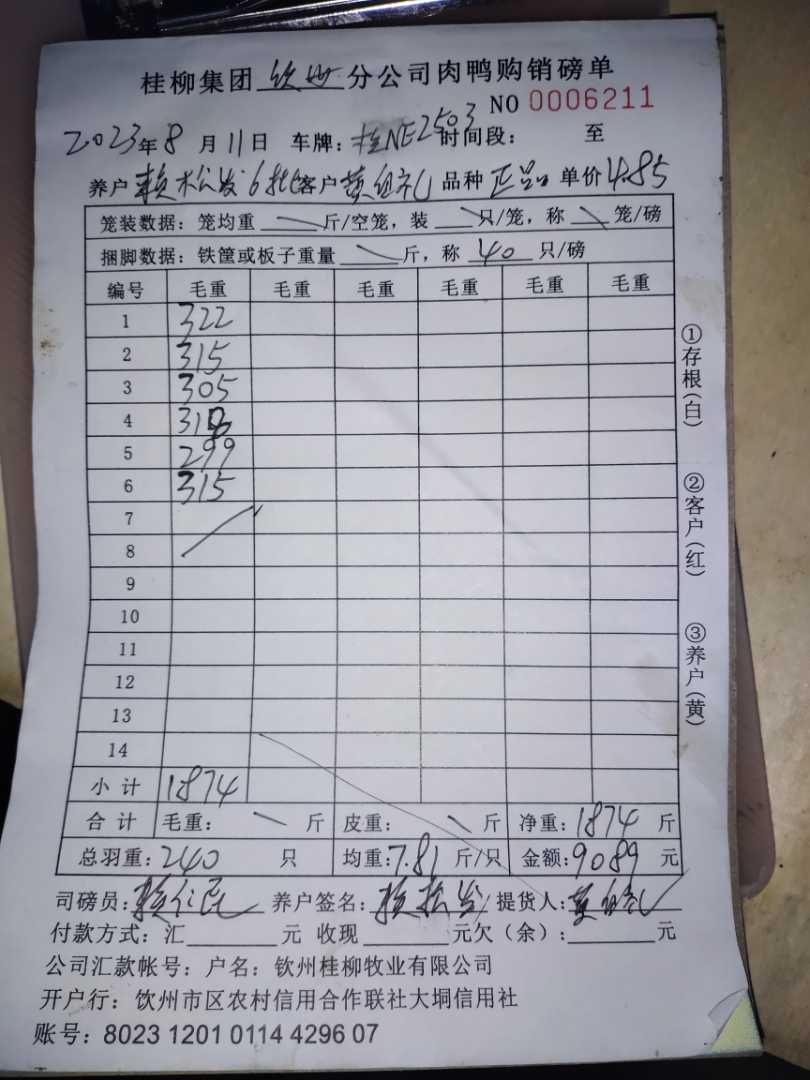 桂柳集团 钦州 分公司肉鸭购销磅单
NO 0006211
2023年8月11日 车牌:桂NE2503 时间段: 至
养户 赖松发6批 客户 黄组礼 品种 正品 单价4.85
笼装数据:笼均重 斤/空笼,装 只/笼,称 笼/磅
捆脚数据:铁筐或板子重量 斤,称 40 只/磅
编号 毛重 毛重 毛重 毛重 毛重 毛重
1 322
2 315
3 305
4 318
5 299
6 315
7
8
9
10
11
12
13
14
小计 1874
合计 毛重: 斤 皮重: 斤 净重:1874 斤
总羽重:240 只 均重:7.81 斤/只 金额:9089 元
司磅员:赖仁民 养户签名:赖松发 提货人:
付款方式:汇 元 收现 元欠(余): 元
公司汇款帐号:户名:钦州桂柳牧业有限公司
开户行:饮州市区农村信用合作联社大垌信用社
账号:8023 1201 0114 4296 07
①存根(白)
②客户(红)
③养户(黄)